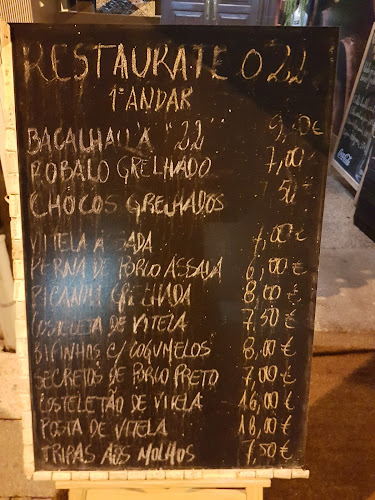 RESTAURATE O 22
1º ANDAR
BACALHAU A "22" 9,00€
ROBALO GRELHADO 7,00
CHOCOS GRELHADOS 7,50
VITELA ASSADA 7,00€
PERNA DE PORCO ASSADA 6,00€
PICANHA GRELHADA 8,00€
COSTELETA DE VITELA 7,50€
BIFINHOS C/ COGUMELOS 8,00€
SECRETOS DE PORCO PRETO 7,00€
COSTELETÃO DE VITELA 16,00€
POSTA DE VITELA 18,00€
TRIPAS AOS MOLHOS 7,50€
Coca-Cola